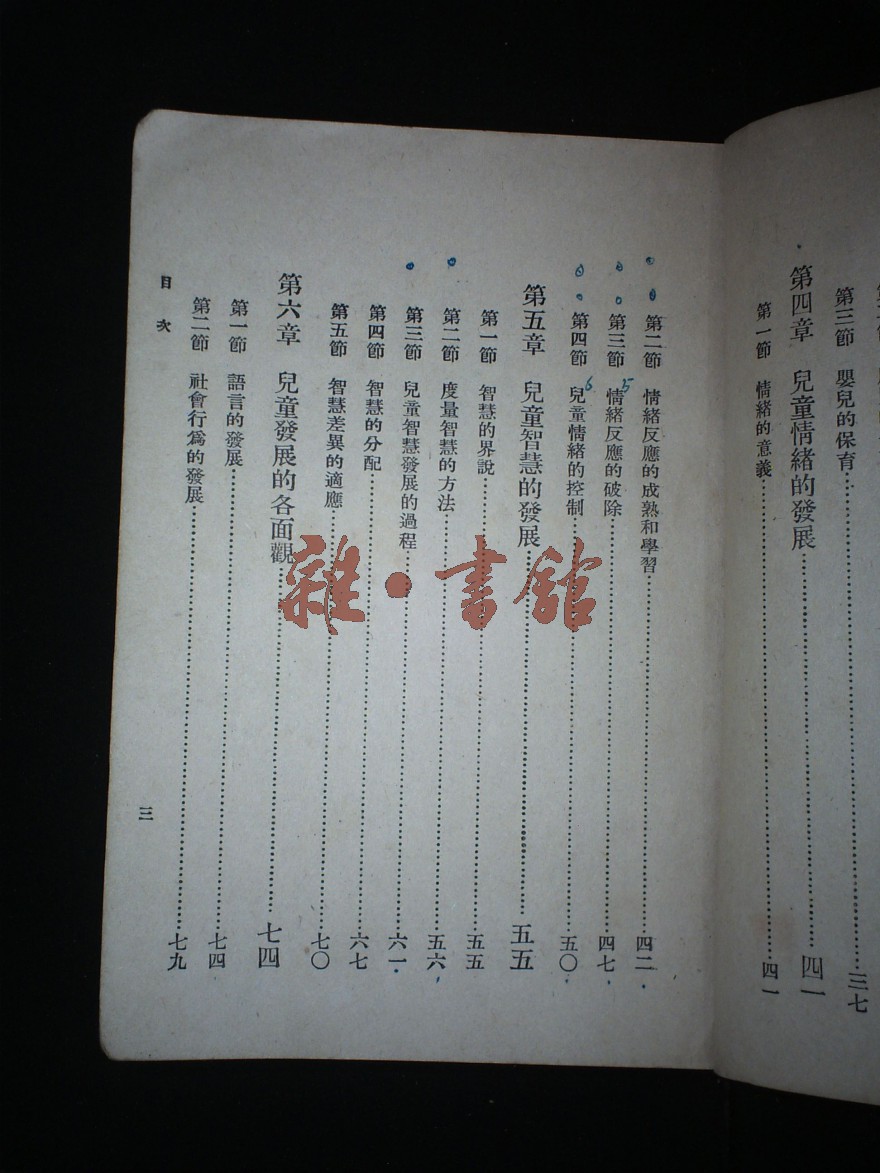 第三節　嬰兒的保育…………三七
第四章　兒童情緒的發展…………四一
第一節　情緒的意義…………四一
第二節　情緒反應的成熟和學習…………四二
第三節　情緒反應的破除…………四七
5
第四節　兒童情緒的控制…………五〇
6
第五章　兒童智慧的發展…………五五
第一節　智慧的界說…………五五
第二節　度量智慧的方法…………五六
第三節　兒童智慧發展的過程…………六一
第四節　智慧的分配…………六七
第五節　智慧差異的適應…………七〇
第六章　兒童發展的各面觀…………七四
第一節　語言的發展…………七四
第二節　社會行為的發展…………七九
目次
三
雜·書館